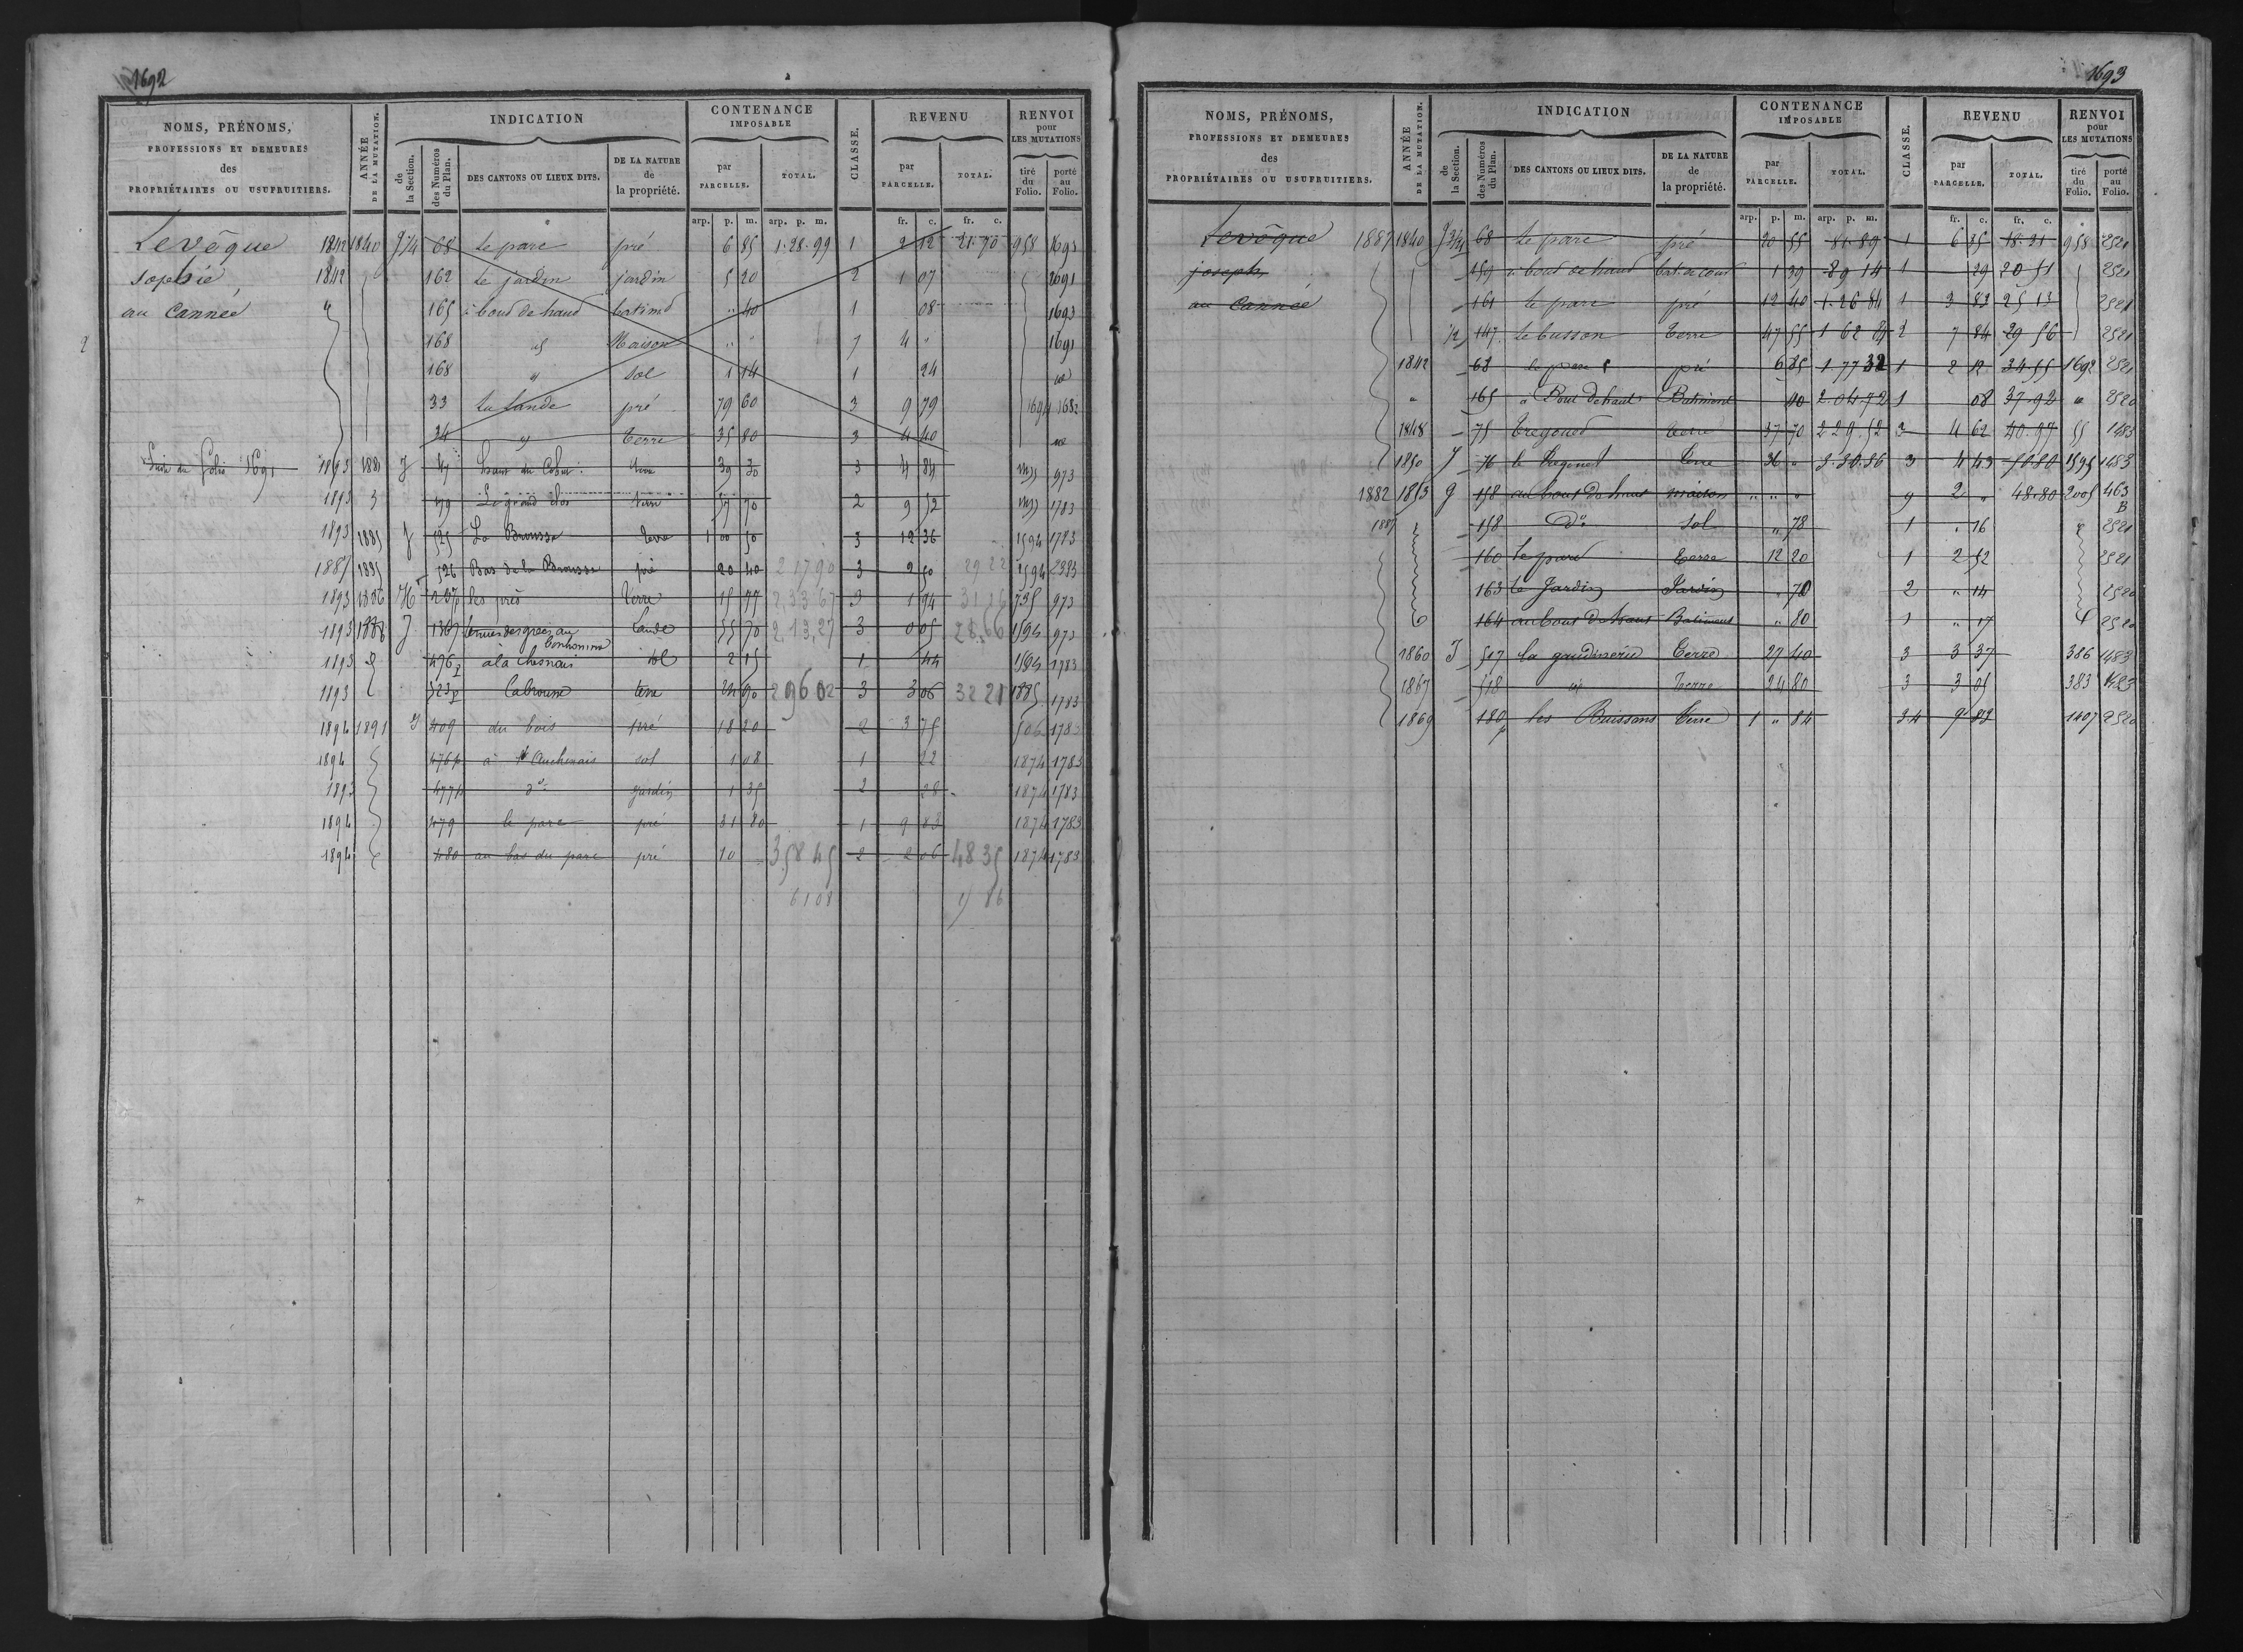 1692
NOMS, PRÉNOMS,
PROFESSIONS ET DEMEURES
des
PROPRIÉTAIRES OU USUFRUITIERS.
ANNÉE
DE LA MUTATION.
INDICATION
de
la Section.
des Numéros
du Plan.
DES CANTONS OU LIEUX DITS.
DE LA NATURE
de
la propriété.
CONTENANCE
IMPOSABLE
par
PARCELLE.
TOTAL.
CLASSE.
REVENU
par
PARCELLE.
TOTAL.
RENVOI
pour
LES MUTATIONS
tiré
du
Folio.
porté
au
Folio.
arp. p. m. arp. p. m. fr. c. fr. c.
Levêque 1842 1840 68 le parc pré 6 85 1.28.99 1 2 12 21.70 958 1693
sophie, 1842 162 le jardin jardin 5 20 2 1 07 1691
au Cannée " 165 à boud de haud batimd " 40 1 08 1693
2 168 id Maison " " 7 4 " 1691
168 " sol 1 14 1 24 id
33 la lande pré 79 60 3 9 79 1694 1682
34 " terre 35 80 3 4 40 id
Suite du folio 1691 1893 1881 J terre 39 30 3 4 84 973
1893 479 Le grand clos terre 57 70 2 9 52 1783
1893 1885 J 525 La Brousse terre 1 00 50 3 12 36 1594 1783
1887 1885 526 Bas de la Brousse pré 20 40 2 17 90 3 2 50 29 22 1594 2383
1893 1886 H 237p les prés terre 15 77 2,33 67 3 1 94 31 16 735 973
1893 1888 J 1367 lande 55 70 2 13,27 3 0 05 28.66 1594 973
1893 476p à la chesnais sol 2 15 1 44 1594 1783
1893 523p Labrousse terre 24 90 2 96 02 3 3 06 32 21 1885 1783
1894 1891 J 409 du bois pré 18 20 2 3 75 1783
1894 476p sol 1 08 1 22 1874 1783
1893 477p do jardin 1 35 2 28 1874 1783
1894 479 le parc pré 31 80 1 9 83 1874 1783
1894 480 au bas du parc pré 10 3,58 45 2 2 06 48 35 1874 1783
61 08
1693
NOMS, PRÉNOMS,
PROFESSIONS ET DEMEURES
des
PROPRIÉTAIRES OU USUFRUITIERS.
ANNÉE
DE LA MUTATION.
INDICATION
de
la Section.
des Numéros
du Plan.
DES CANTONS OU LIEUX DITS.
DE LA NATURE
de
la propriété.
CONTENANCE
IMPOSABLE
par
PARCELLE.
TOTAL.
CLASSE.
REVENU
par
PARCELLE.
TOTAL.
RENVOI
pour
LES MUTATIONS
tiré
du
Folio.
porté
au
Folio.
arp. p. m. arp. p. m. fr. c. fr. c.
Levêque 1887 1840 68 le parc pré 20 55 81.89 1 6 85 18.21 958 2521
joseph 159 à boud de haud bat. et cour 1 39 89 14 1 29 20 51 2521
au Cannée 161 le parc pré 12 40 1.26 84 1 3 83 25 13 2521
1/2 147 le busson terre 47 55 1 62 84 2 7 84 29 56 2521
1842 68 le parc pré 6 85 1 77 32 1 2 12 34 55 1692 2521
" 165 à Bout de haut Batiment 40 2.04.72 1 08 37.92 " 2520
1848 75 tregoued terre 37 70 2 29.52 3 4 62 40.97 55 1483
1850 J 76 le tregoued terre 36 " 3 4 43 1595 1483
1882 1853 g 158 au bout de haut maison " " " 9 2 " 48.80 2005 463
B
1887 158 Do sol " 78 1 " 16 2521
160 le parc terre 12 20 1 2 52 2521
163 le Jardin Jardin " 70 2 " 14 2520
164 au bout du haut Batiment " 80 1 " 17 2520
1860 J 517 la gaudinerie terre 27 40 3 3 37 386 1483
1867 518 id terre 24 80 3 3 05 383 1483
1869 180p les Buissons terre 1 " 84 3 4 9 83 1407 2520